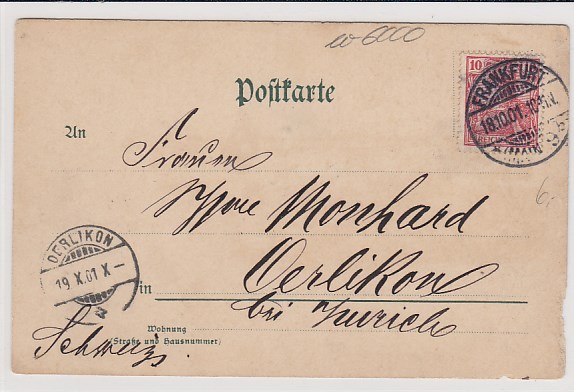 6000
Postkarte
10
FRANKFURT
18.10.01.
(MAIN)
An
Monhard
OERLIKON
19.X.01.X–
Oerlikon
in
bei Zürich
Wohnung
(Straße und Hausnummer)
Schweiz.
6.